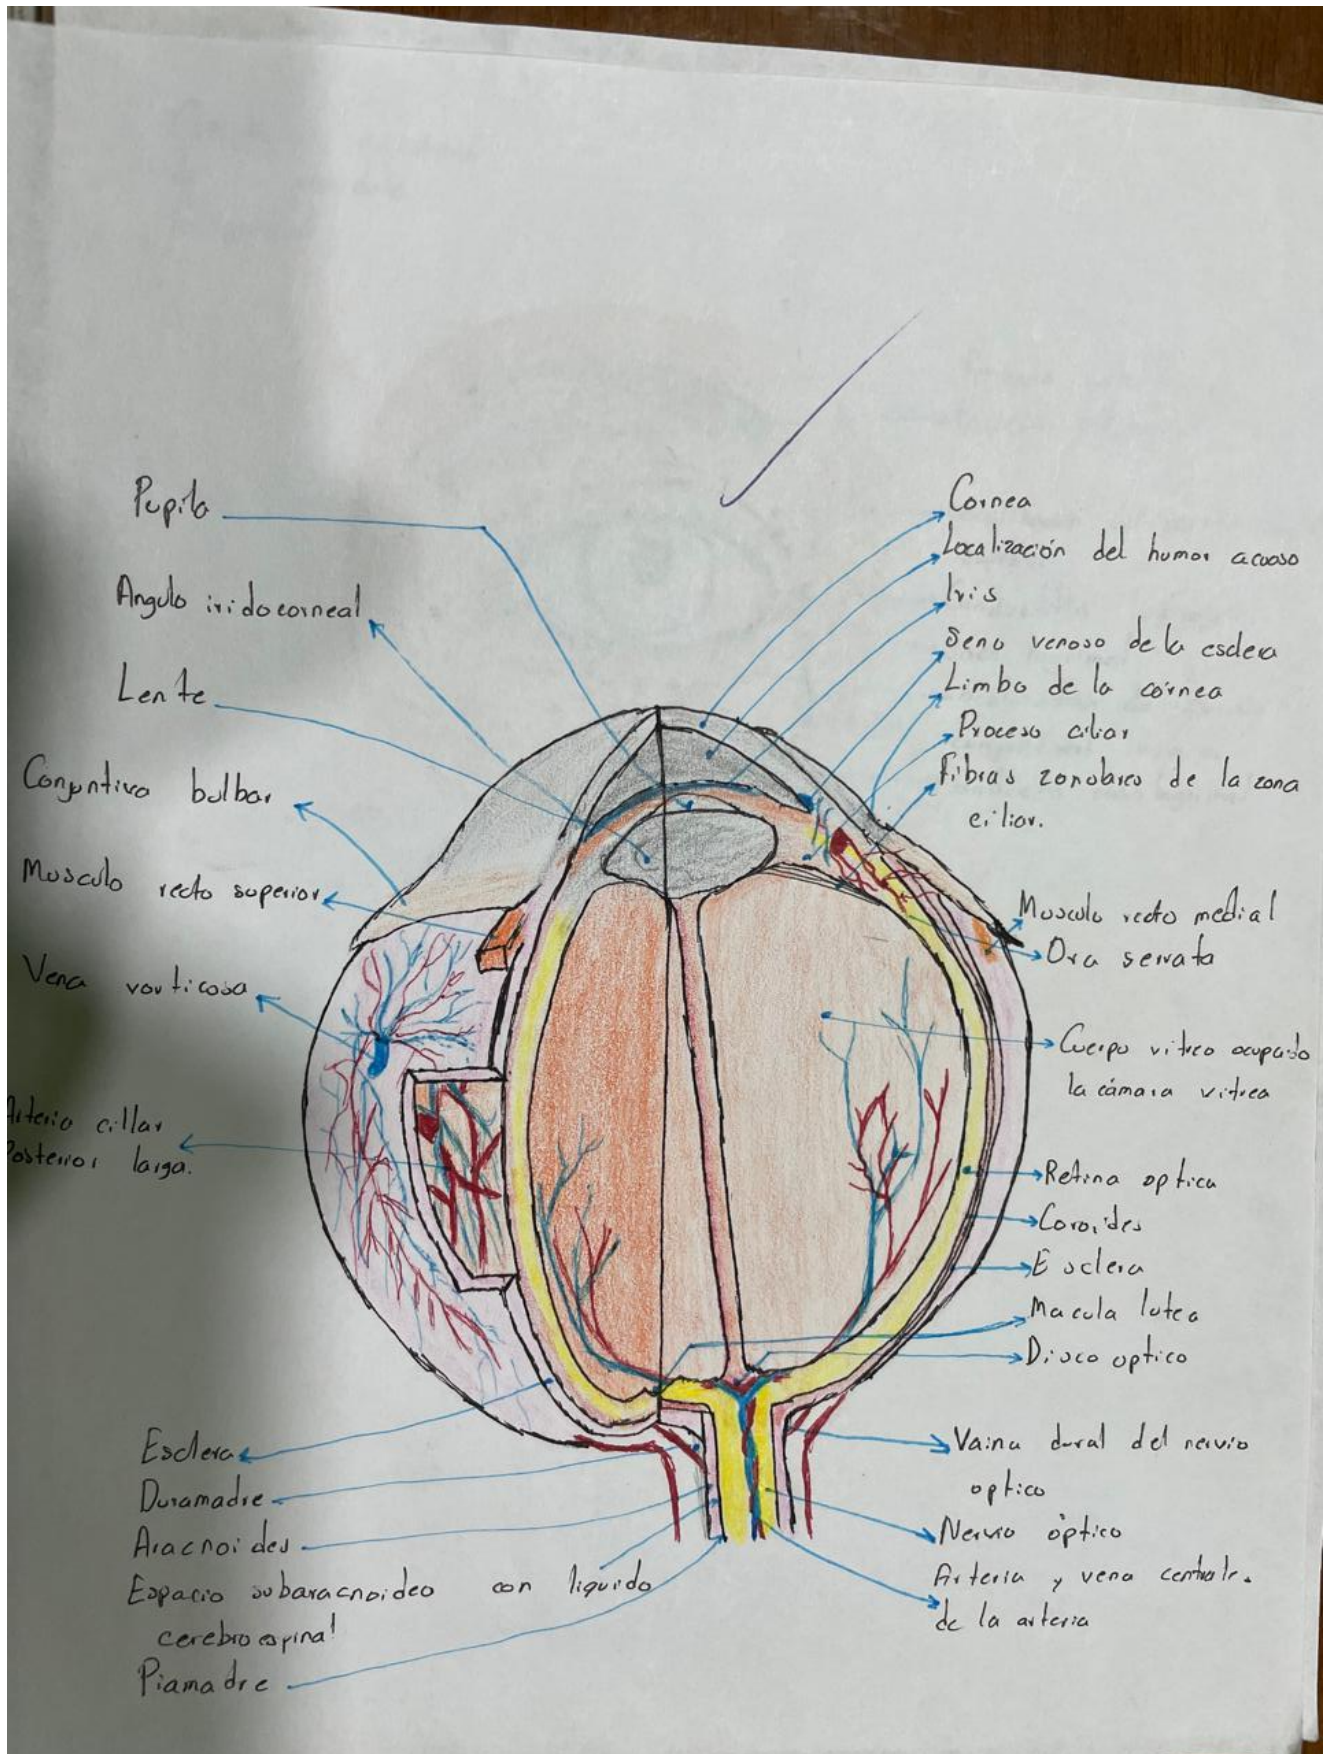 Pupila
Angulo iridocorneal
Lente
Conjuntiva bulbar
Musculo recto superior
Vena vorticosa
Arteria cillar
Posterior larga.
Esclera
Duramadre
Aracnoides
Espacio subaracnoideo con liquido
cerebroespinal
Piamadre
Cornea
Localización del humor acuoso
Iris
Seno venoso de la esclera
Limbo de la córnea
Proceso ciliar
Fibras zonulares de la zona
ciliar.
Musculo recto medial
Ora serrata
Cuerpo vitreo ocupando
la cámara vitrea
Retina optica
Coroides
Esclera
Macula lutea
Disco optico
Vaina dural del nervio
optico
Nervio óptico
Arteria y vena centrale.
de la arteria